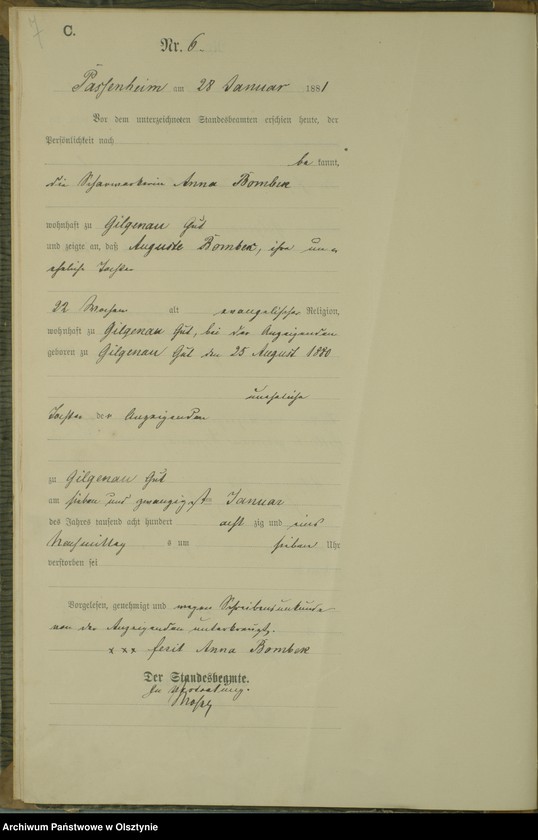 7
C.
Nr. 6.
Passenheim am 28 Januar 1881
Vor dem unterzeichneten Standesbeamten erschien heute, der
Persönlichkeit nach
be kannt,
die Scharwerkerin Anna Bombek
wohnhaft zu Gilgenau Gut
und zeigte an, daß Auguste Bombek, ihre un=
eheliche Tochter
22 Wochen alt evangelischer Religion,
wohnhaft zu Gilgenau Gut, bei der Anzeigenden
geboren zu Gilgenau Gut den 25 August 1880
uneheliche
Tochter der Anzeigenden
zu Gilgenau Gut
am sieben und zwanzigsten Januar
des Jahres tausend acht hundert acht zig und eins
Nachmittag s um sieben Uhr
verstorben sei
Vorgelesen, genehmigt und wegen Schreibensunkunde
von der Anzeigenden unterkreuzt.
x x x fecit Anna Bombek
Der Standesbeamte.
In Vertretung.
Archiwum Państwowe w Olsztynie